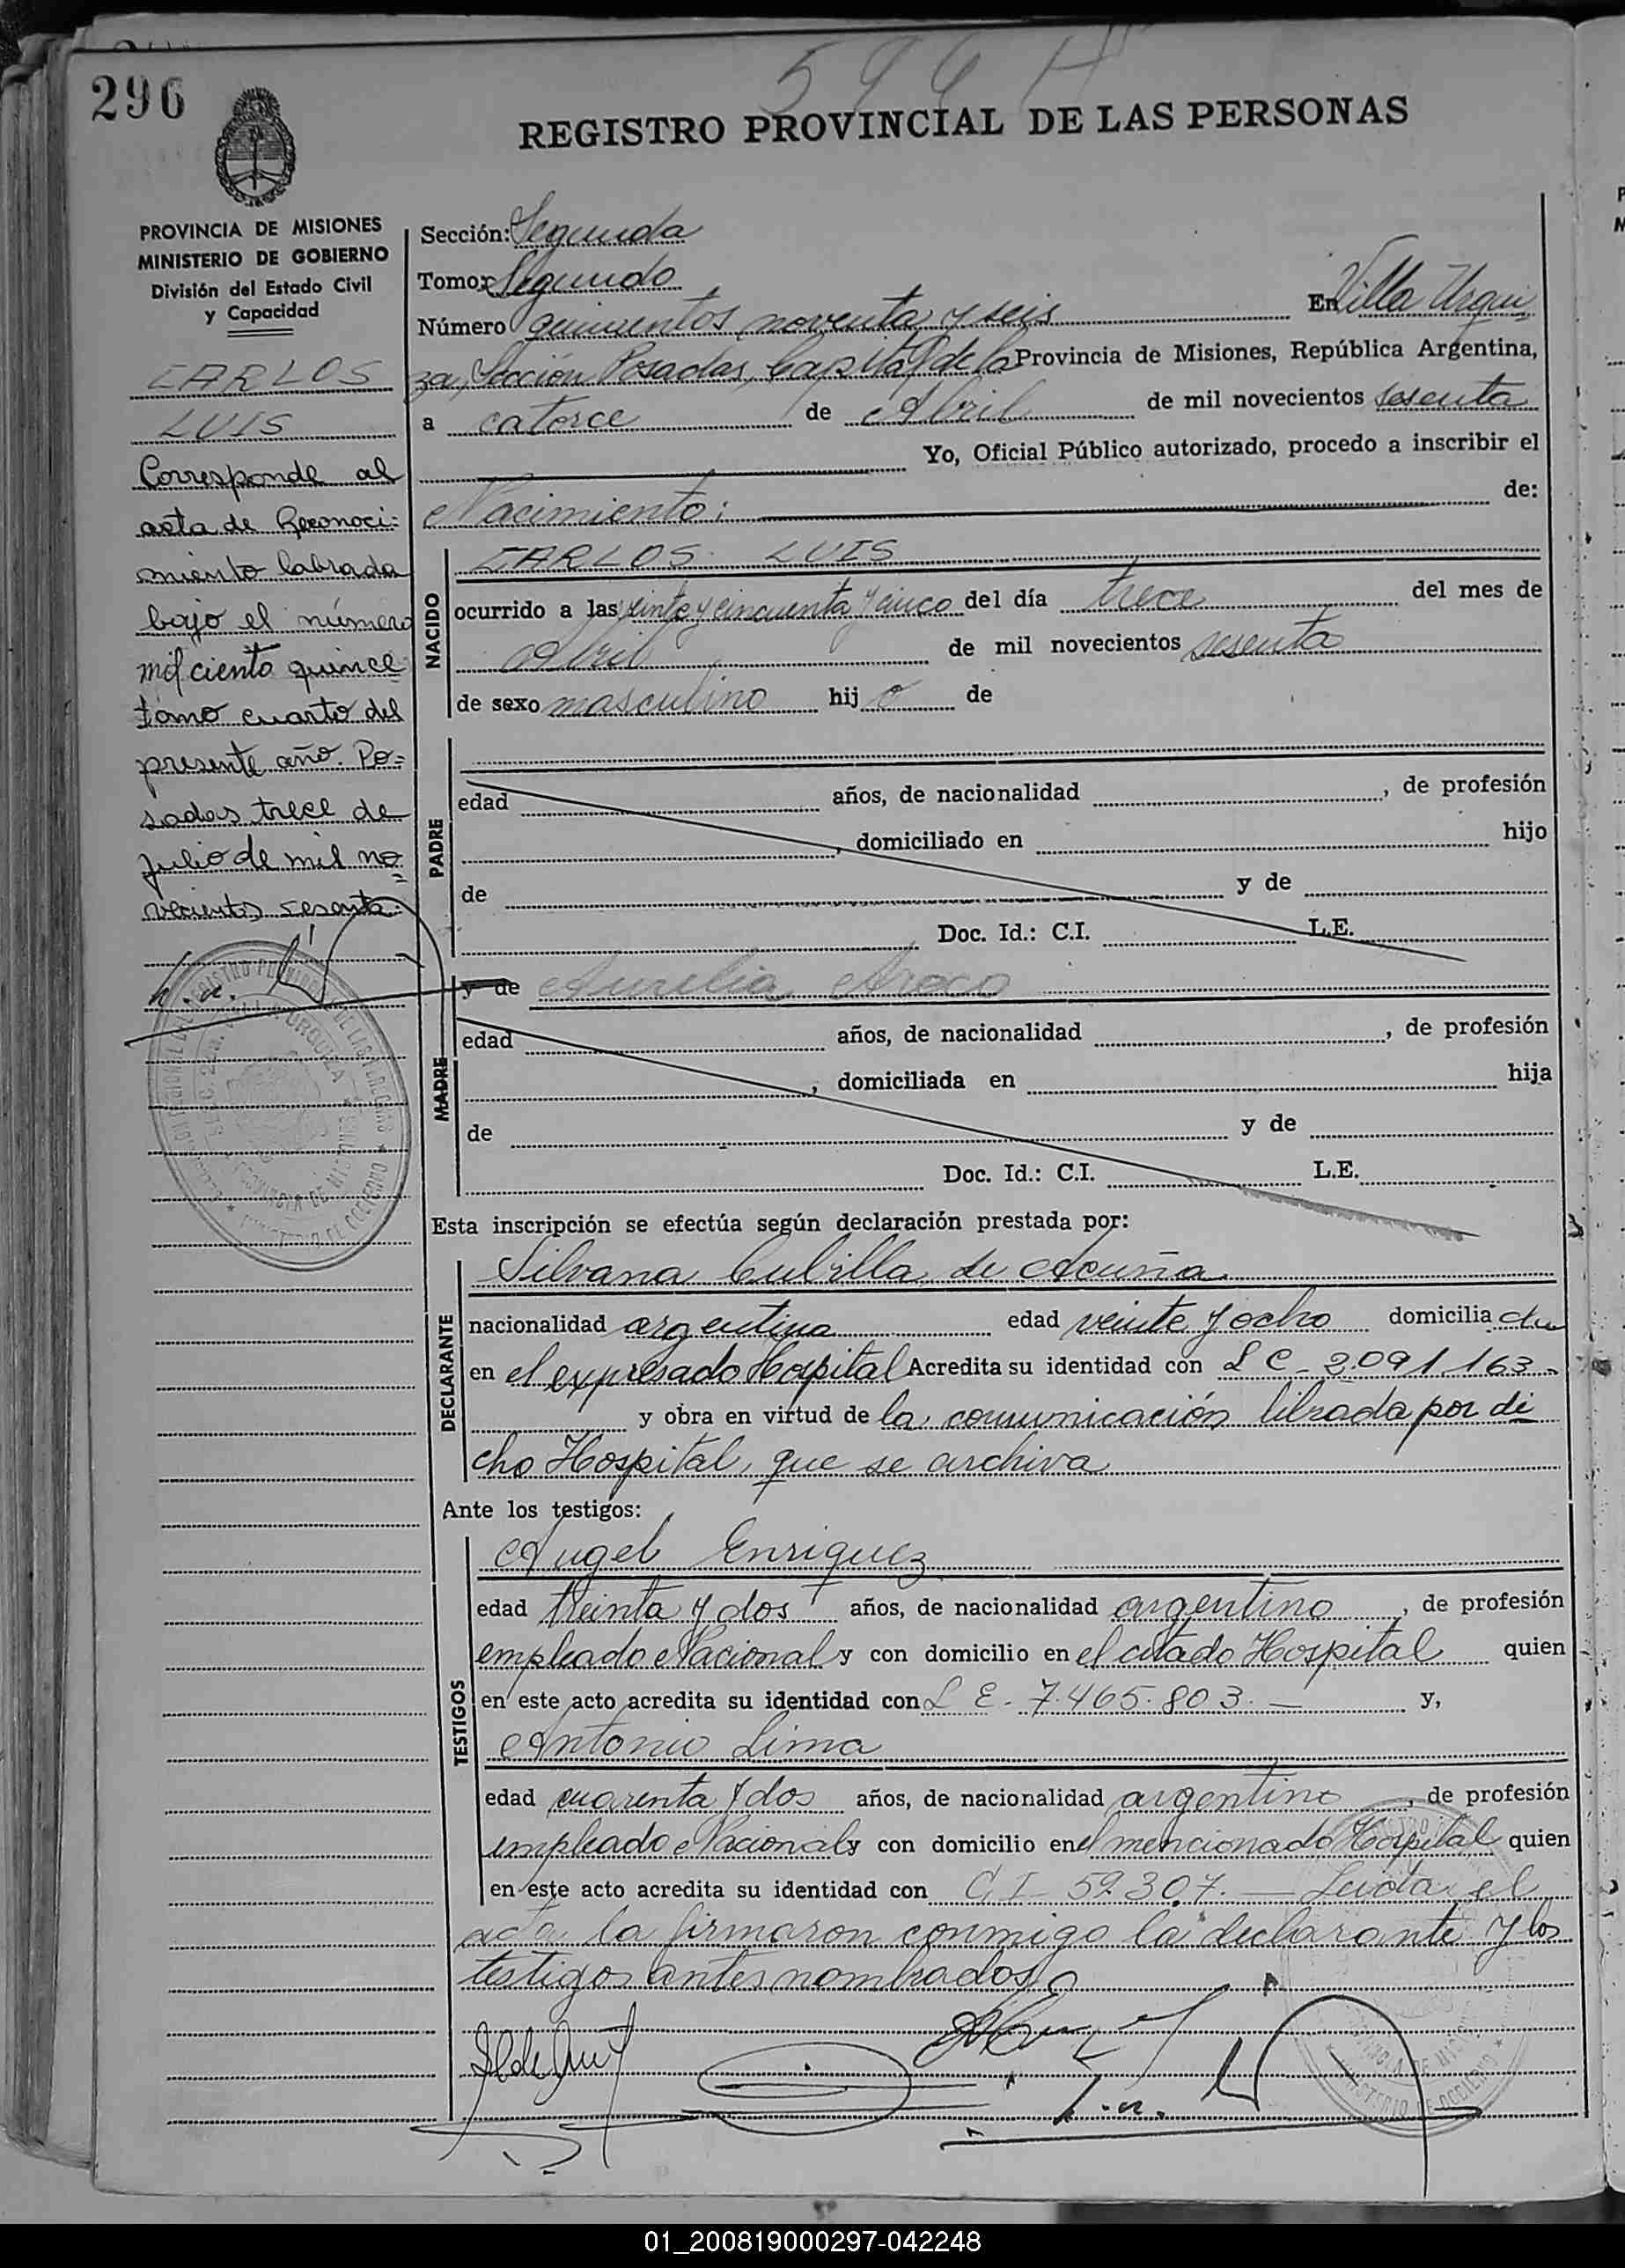 296
596
REGISTRO PROVINCIAL DE LAS PERSONAS
PROVINCIA DE MISIONES
MINISTERIO DE GOBIERNO
División del Estado Civil
y Capacidad
CARLOS
LUIS
Corresponde al
acta de Reconoci=
miento labrada
bajo el número
mil ciento quince
tomo cuarto del
presente año. Po=
sadas trece de
julio de mil no=
vecientos sesenta
Sección: Segunda
Tomo: Segundo
Número quinientos noventa y seis En Villa Urqui
za, Sección Posadas, Capital de la Provincia de Misiones, República Argentina,
a catorce de Abril de mil novecientos sesenta
Yo, Oficial Público autorizado, procedo a inscribir el
Nacimiento: de:
NACIDO
CARLOS LUIS
ocurrido a las veinte y cincuenta y cinco del día trece del mes de
Abril de mil novecientos sesenta
de sexo masculino hij o de
PADRE
edad años, de nacionalidad , de profesión
, domiciliado en hijo
de y de
Doc. Id.: C.I. L.E.
MADRE
y de Aurelia
edad años, de nacionalidad , de profesión
, domiciliada en hija
de y de
Doc. Id.: C.I. L.E.
Esta inscripción se efectúa según declaración prestada por:
DECLARANTE
Silvana Cubilla de Acuña
nacionalidad argentina edad veinte y ocho domicilia da
en el expresado Hospital Acredita su identidad con L C - 2.091.163-
y obra en virtud de la comunicación librada por di
cho Hospital, que se archiva
Ante los testigos:
TESTIGOS
Angel Enriquez
edad treinta y dos años, de nacionalidad argentino , de profesión
empleado Nacional y con domicilio en el citado Hospital quien
en este acto acredita su identidad con L E - 7.465.803.— y,
Antonio Lima
edad cuarenta y dos años, de nacionalidad argentino , de profesión
empleado Nacional y con domicilio en el mencionado Hospital quien
en este acto acredita su identidad con C.I - 52.307.— Leida el
acta la firmaron conmigo la declarante y los
testigos antes nombrados
01_200819000297-042248